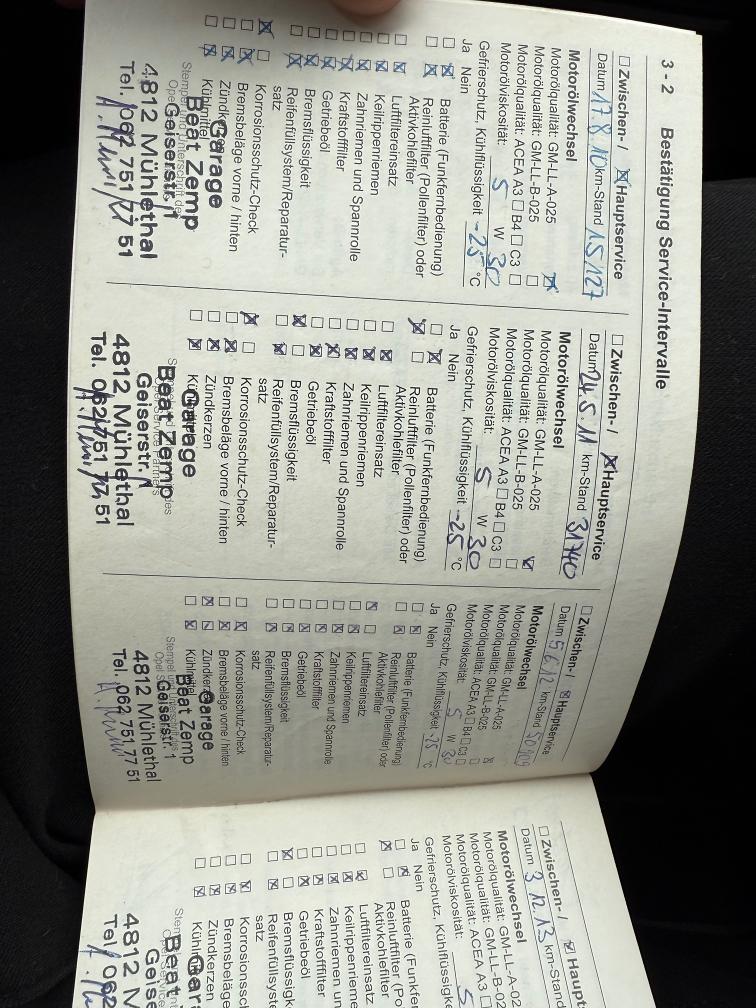 3 - 2 Bestätigung Service-Intervalle
Zwischen- / Hauptservice
Datum 17.8.10 km-Stand 15127
Motorölwechsel
Motorölqualität: GM-LL-A-025
Motorölqualität: GM-LL-B-025
Motorölqualität: ACEA A3 B4 C3
Motorölviskosität: 5 W 30
Gefrierschutz, Kühlflüssigkeit -25 °C
Ja Nein
Batterie (Funkfernbedienung)
Reinluftfilter (Pollenfilter) oder
Aktivkohlefilter
Luftfiltereinsatz
Keilrippenriemen
Zahnriemen und Spannrolle
Kraftstofffilter
Getriebeöl
Bremsflüssigkeit
Reifenfüllsystem/Reparatur-
satz
Korrosionsschutz-Check
Bremsbeläge vorne / hinten
Zündkerzen
Kühlmittel
Garage
Beat Zemp
Geiserstr. 1
4812 Mühlethal
Tel. 062 751 77 51
Zwischen- / Hauptservice
Datum 24.5.11 km-Stand 31740
Motorölwechsel
Motorölqualität: GM-LL-A-025
Motorölqualität: GM-LL-B-025
Motorölqualität: ACEA A3 B4 C3
Motorölviskosität: 5 W 30
Gefrierschutz, Kühlflüssigkeit -25 °C
Ja Nein
Batterie (Funkfernbedienung)
Reinluftfilter (Pollenfilter) oder
Aktivkohlefilter
Luftfiltereinsatz
Keilrippenriemen
Zahnriemen und Spannrolle
Kraftstofffilter
Getriebeöl
Bremsflüssigkeit
Reifenfüllsystem/Reparatur-
satz
Korrosionsschutz-Check
Bremsbeläge vorne / hinten
Zündkerzen
Garage
Beat Zemp
Geiserstr. 1
4812 Mühlethal
Tel. 062 751 77 51
Zwischen- / Hauptservice
Datum 5.6.12 km-Stand
Motorölwechsel
Motorölqualität: GM-LL-A-025
Motorölqualität: GM-LL-B-025
Motorölqualität: ACEA A3 B4 C3
Motorölviskosität: 5 W 30
Gefrierschutz, Kühlflüssigkeit °C
Ja Nein
Batterie (Funkfernbedienung)
Reinluftfilter (Pollenfilter) oder
Aktivkohlefilter
Luftfiltereinsatz
Keilrippenriemen
Zahnriemen und Spannrolle
Kraftstofffilter
Getriebeöl
Bremsflüssigkeit
Reifenfüllsystem/Reparatur-
satz
Korrosionsschutz-Check
Bremsbeläge vorne / hinten
Zündkerzen
Kühlmittel
Garage
Beat Zemp
Geiserstr. 1
4812 Mühlethal
Tel. 062 751 77 51
Zwischen- / Haupt
Datum 3.12.13 km-Stand
Motorölwechsel
Motorölqualität: GM-LL-A-02
Motorölqualität: GM-LL-B-02
Motorölqualität: ACEA A3
Motorölviskosität: 5
Gefrierschutz, Kühlflüssigke
Ja Nein
Batterie (Funkfer
Reinluftfilter (Po
Aktivkohlefilter
Luftfiltereinsatz
Keilrippenrieme
Zahnriemen un
Kraftstofffilter
Getriebeöl
Bremsflüssigk
Reifenfüllsyste
satz
Korrosionssc
Bremsbeläge
Zündkerzen
Kühl
Gar
Beat
Geise
4812 M
Tel. 062